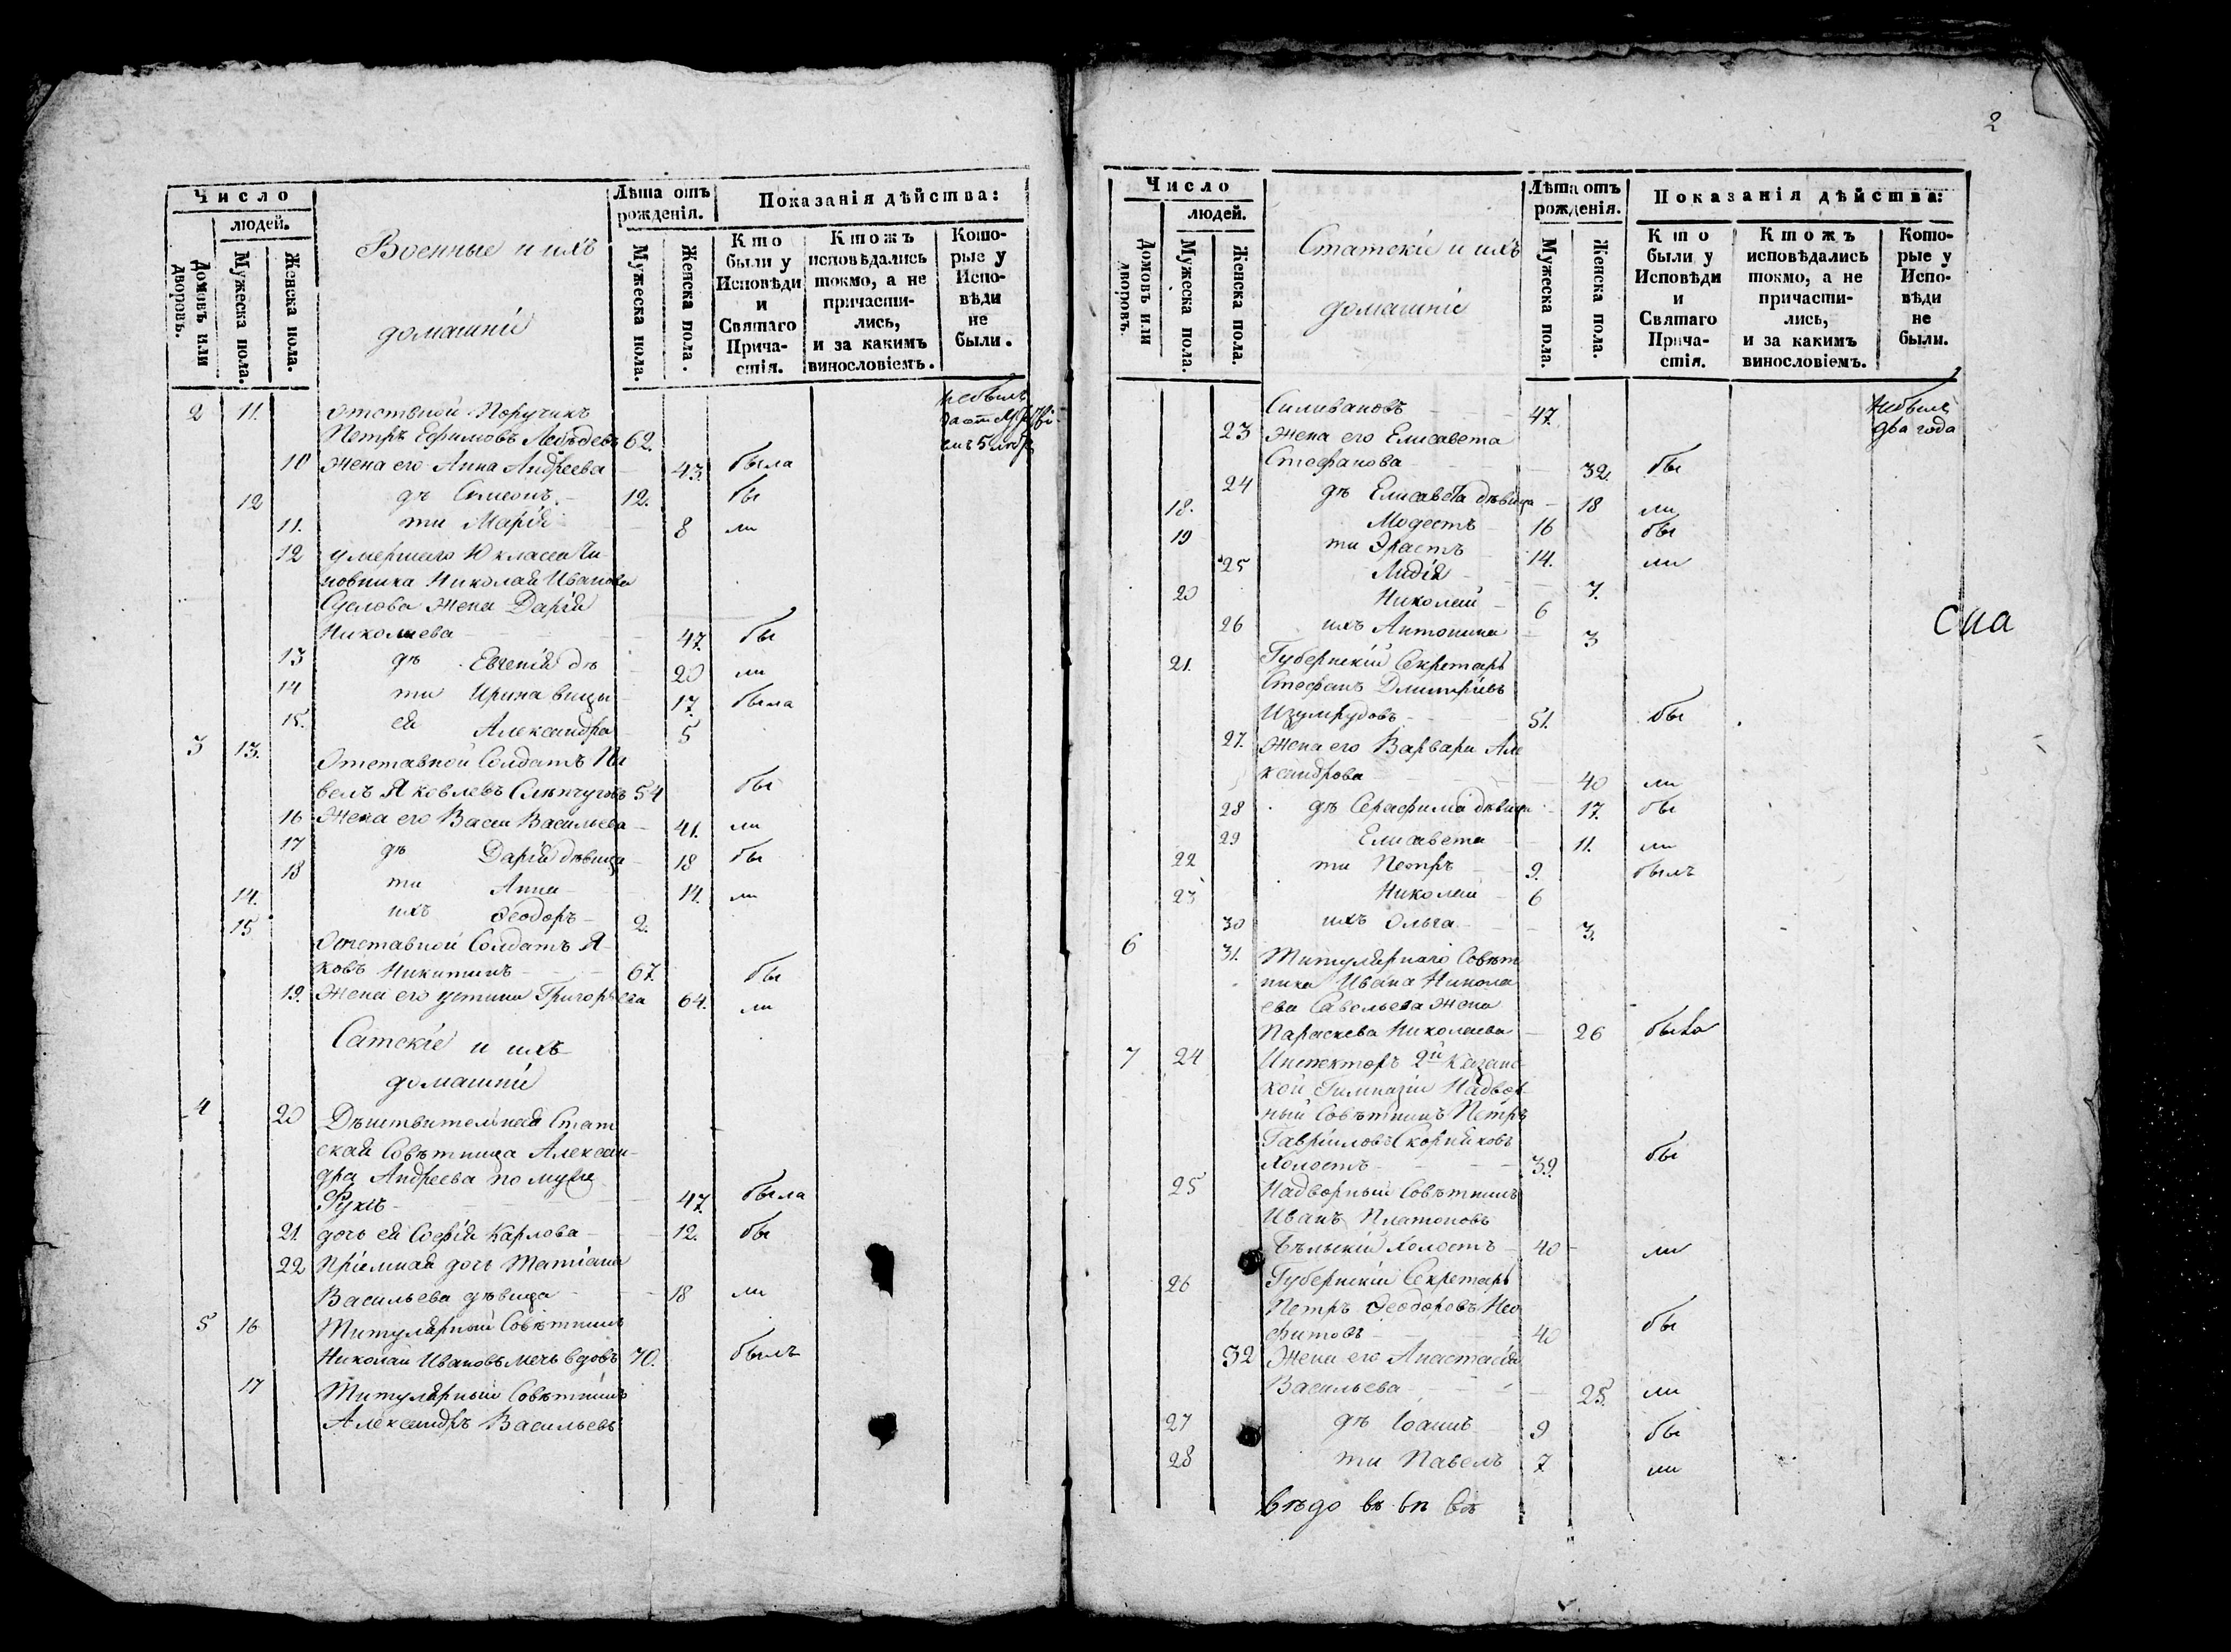 Число
людей.
Домовъ или дворовъ.
Мужеска пола.
Женска пола.
Военные и ихъ
домашніи
Лѣта отъ рожденія.
Мужеска пола.
Женска пола.
Показанія дѣйства:
Кто были у Исповѣди и Святаго Прича-стія.
Ктожъ исповѣдались токмо, а не причасти-лись, и за какимъ винословіемъ.
Кото-рые у Испо-вѣди не были.
2 11. Отставной Поручикъ небылъ
Петръ Ефимовъ 62.
10 Жена его Анна Андреева 43. была
12 дѣ Симеонъ 12. бы
11. ти Марія 8 ли
12 умершаго 10 класса Чи-
новника Николая Иванова
Суслова Жена Дарія
Николаева 47. бы
13 дѣ Евгенія дѣ 20 ли
14 ти Ирина вицы 17. была
15. ея Александра 5
3 13. Отставной Солдатъ Па
велъ Яковлевъ 54 бы
16 Жена его Васса Васильева 41. ли
17 дѣ Дарія дѣвица 18 бы
18 ти Анна 14. ли
14. ихъ Ѳеодоръ 2.
15 Отставной Солдатъ Я-
ковъ Никитинъ 67. бы
19. Жена его Устина Григорьева 64. ли
Сатскіе и ихъ
домашніи
4 20 Дѣиствительная Стат
ская Совѣтница Алексан-
дра Андреева по мужѣ
Фуксъ 47. была
21. дочь ея Софія Карлова 12. бы
22 Пріемная дочь Татіана
Васильева дѣвица 18 ли
5 16 Титулярный Совѣтникъ
Николай Ивановъ Мечь вдовъ 70. былъ
17 Титулярный Совѣтникъ
Александръ Васильевъ
2
Число
людей.
Домовъ или дворовъ.
Мужеска пола.
Женска пола.
Статскіе и ихъ
домашніе
Лѣта отъ рожденія.
Мужеска пола.
Женска пола.
Показанія дѣйства:
Кто были у Исповѣди и Святаго Прича-стія.
Ктожъ исповѣдались токмо, а не причасти-лись, и за какимъ винословіемъ.
Кото-рые у Испо-вѣди не были.
Силивановъ 47. небылъ
23 Жена его Елисавета два года
Стефанова 32. бы
24 дѣ Елисавета дѣвица 18 ли
18. Модестъ 16 бы
19 ти Эрастъ 14. ли
25 Лидія 7.
20 Николай 6
26 ихъ Антонина 3
21. Губернскій Секретарь
Стефанъ Димитріевъ
Изумрудовъ 51. бы
27. Жена его Варвара Але
ксандрова 40 ли
28 дѣ Серафима дѣвица 17. бы
29 Елисавета 11. ли
22 ти Петръ 9. былъ
23 Николай 6
30 ихъ Ольга 3.
6 31. Титулярнаго Совѣт
ника Ивана Никола
ева Савельева Жена
Параскева Николаева 26 была
7 24 Инспекторъ 2й Казанс-
кой Гимназіи Надвор-
ный Совѣтникъ Петръ
Гавріиловъ Скорняковъ
Холостъ 39. бы
25 Надворный Совѣтникъ
Иванъ Платоновъ
Бѣльскій Холостъ 40 ли
26 Губернскій Секретарь
Петръ Ѳеодоровъ Нео
фитовъ 40 бы
32 Жена его Анастасія
Васильева 25. ли
27 дѣ Іоаннъ 9 бы
28 ти Павелъ 7 ли